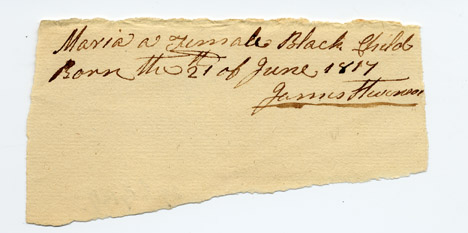 Maria a Female Black Child
Born the 21 of June 1817
James